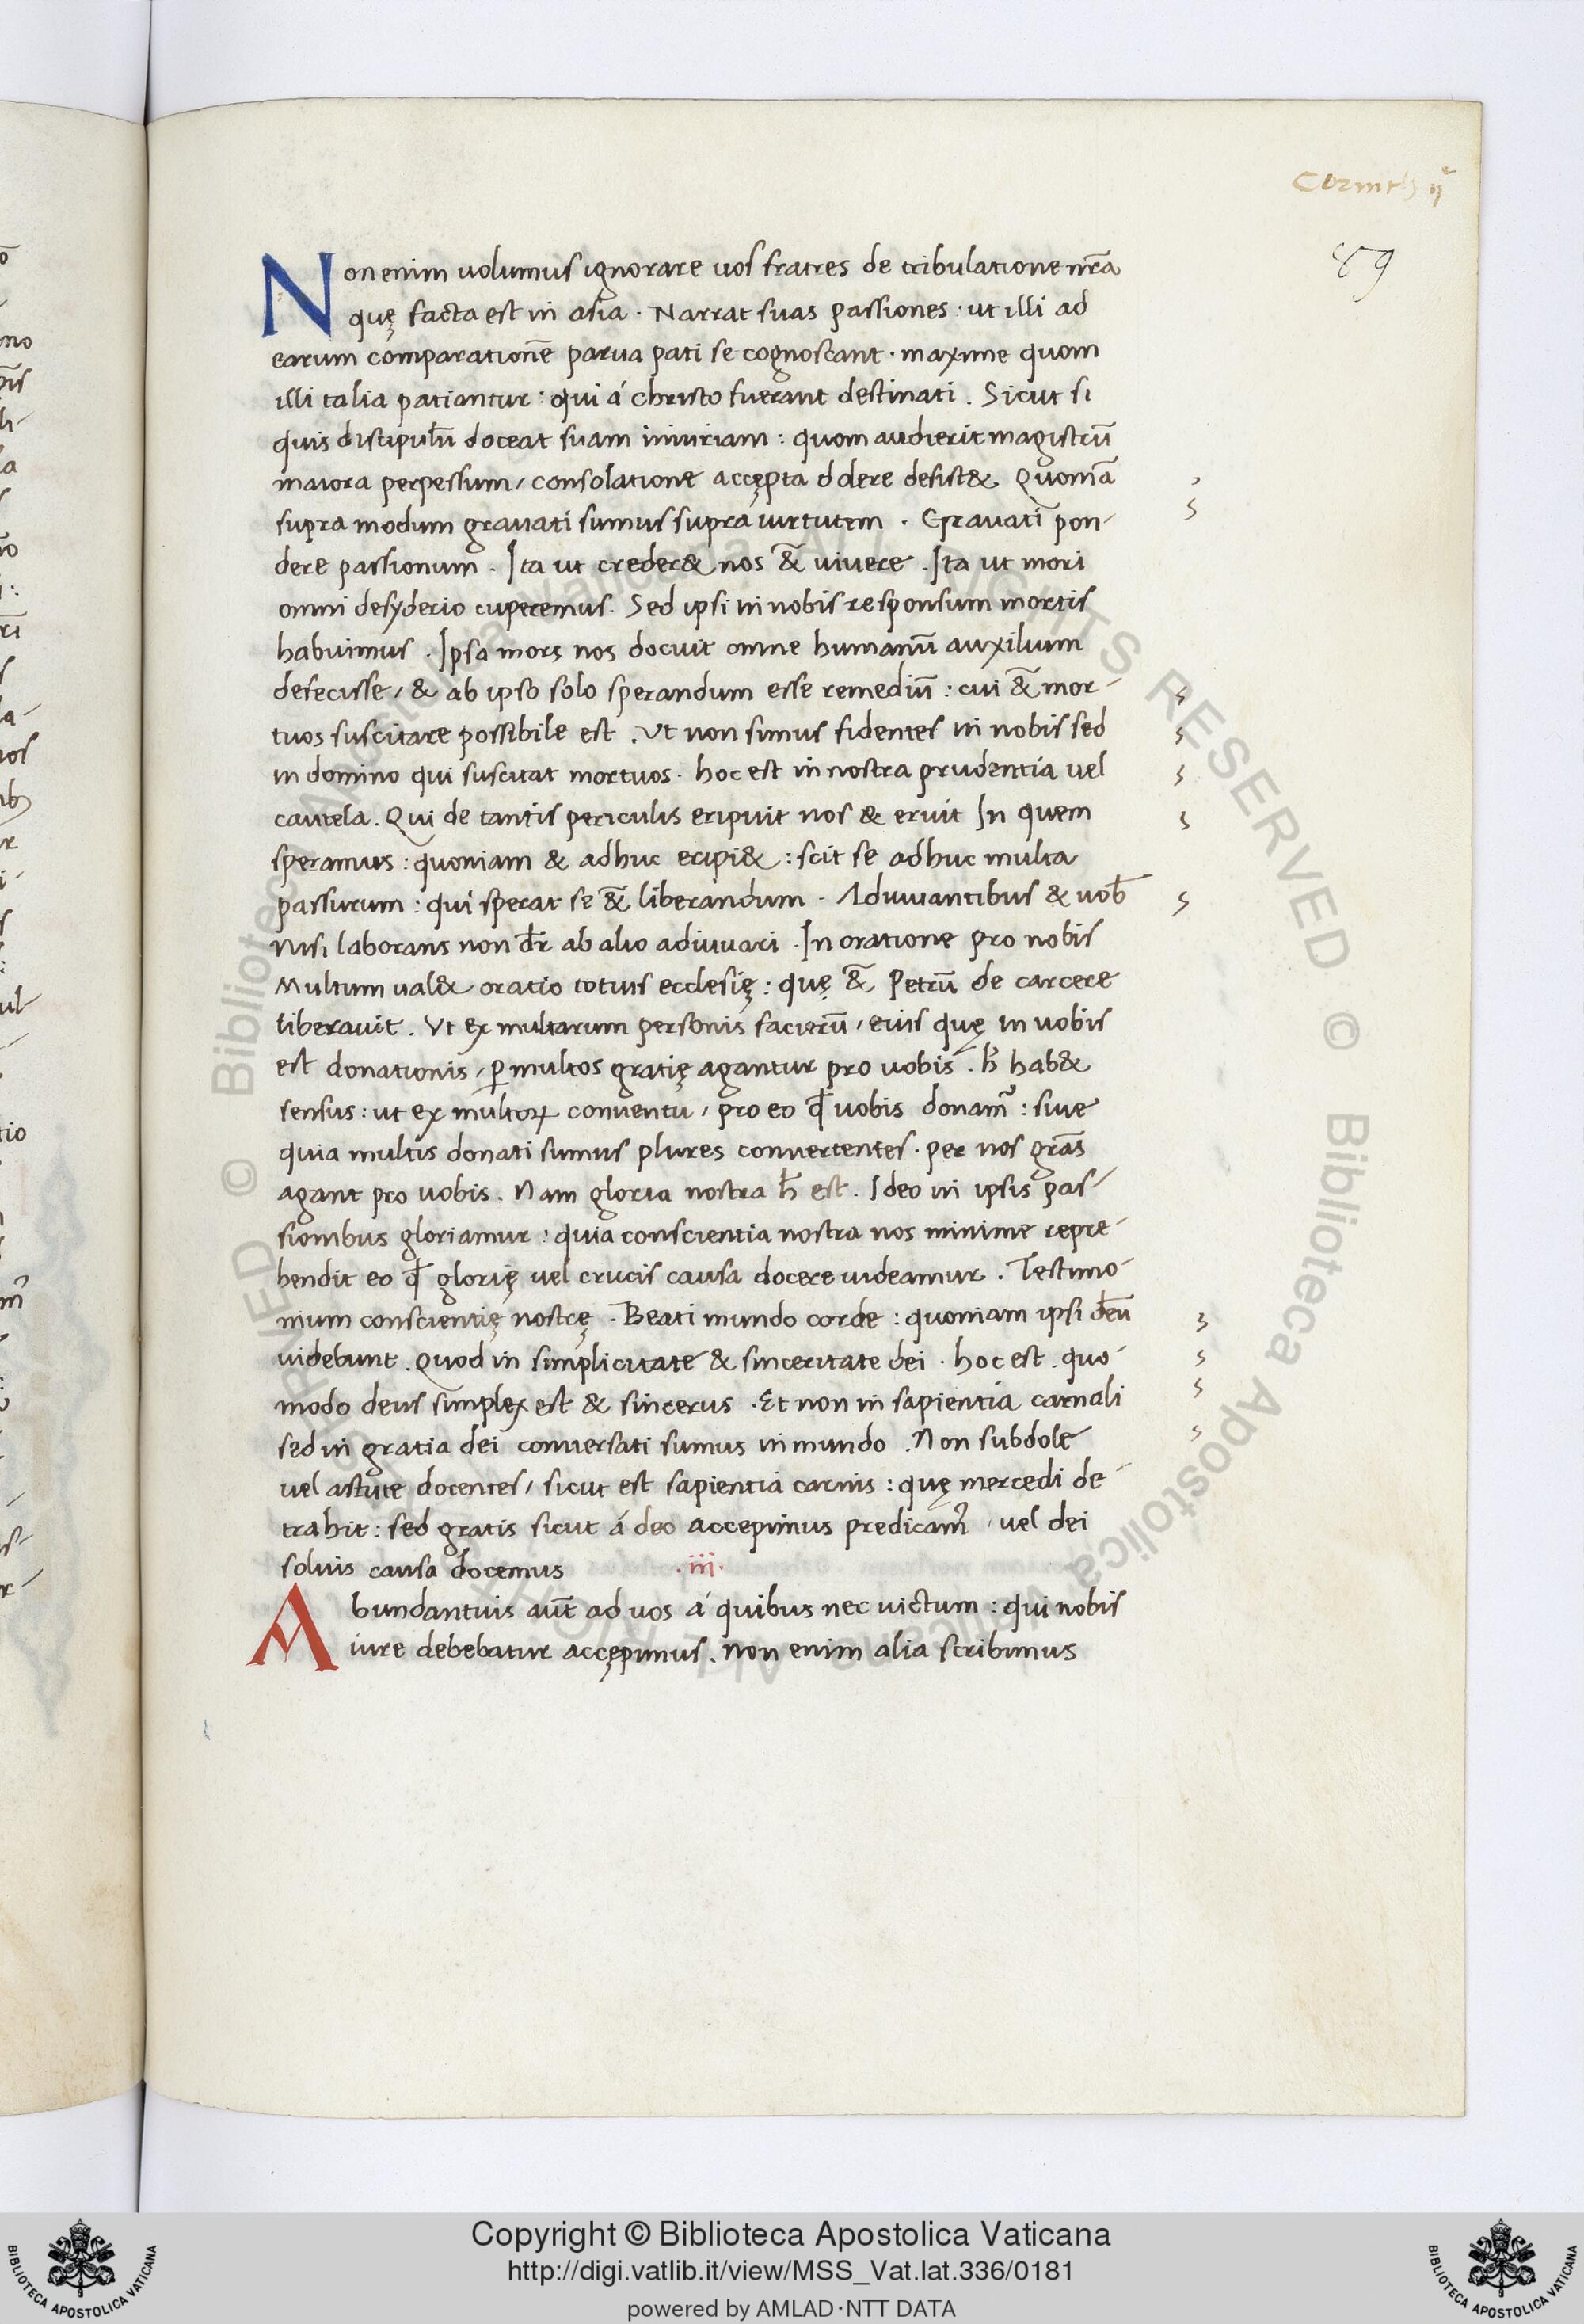 Corinth ij
89
Non enim uolumus ignorare uos fratres de tribulatione nr̃a
quę facta est in asia . Narrat suas passiones : ut illi ad
earum comparationē parua pati se cognoscant . maxime quom
illi talia patiantur : qui á christo fuerant destinati . Sicut si
quis discipulū doceat suam iniuriam : quom audierit magistrū
maiora perpessum / consolatione accępta dere desist& Quoniā
supra modum grauati sumus supra uirtutem . Grauati pon-
dere passionum . Ita ut creder& nos &̄ uiuere . Ita ut mori
omni desyderio cuperemus . Sed ipsi in nobis responsum mortis
habuimus . Ipsa mors nos docuit omne humanū auxilium
defecisse / & ab ipso solo sperandum esse remediū : cui &̄ mor-
tuos suscitare possibile est . Ut non simus fidentes in nobis sed
in domino qui suscitat mortuos . hoc est in nostra prudentia vel
cautela . Qui de tantis periculis eripuit nos & eruit In quem
speramus : quoniam & adhuc eripi& : scit se adhuc multa
passurum : qui sperat se &̄ liberandum . Adiuuantibus & uob̄
Nisi laborans non dr̄ ab alio adiuuari . In oratione pro nobis
Multum ual& oratio totius ecclesię : quę &̄ Petrū de carcere
liberauit . Ut ex multarum personis facierū / eius quę in uobis
est donationis / ꝑ multos gratię agantur pro uobis . h̄ hab&
sensus : ut ex multoꝝ conuentu / pro eo ꝙ uobis donam᷑ : siue
quia multis donati sumus plures conuertentes . per nos gr̄as
agant pro uobis . Nam gloria nostra h̄ est . Ideo in ipsis pas-
sionibus gloriamur : quia conscientia nostra nos minime repre-
hendit eo ꝙ glorię uel crucis causa docere uideamur . Testimo-
nium conscientię nostrę . Beati mundo corde : quoniam ipsi deū
uidebunt . Quod in simplicitate & sinceritate dei . hoc est . quo-
modo deus simplex est & sincerus . Et non in sapientia carnali
sed in gratia dei conuersati sumus in mundo . Non subdole
uel astute docentes / sicut est sapientia carnis : quę mercedi de-
trahit : sed gratis sicut á deo accepimus predicam᷑ / uel dei
solius causa docemus .iii.
Abundantius aūt ad uos á quibus nec uictum : qui nobis
iure debebatur accępimus . Non enim alia scribimus
© Biblioteca Apostolica Vaticana ALL RIGHTS RESERVED
Copyright © Biblioteca Apostolica Vaticana
http://digi.vatlib.it/view/MSS_Vat.lat.336/0181
powered by AMLAD·NTT DATA
BIBLIOTECA APOSTOLICA VATICANA
BIBLIOTECA APOSTOLICA VATICANA